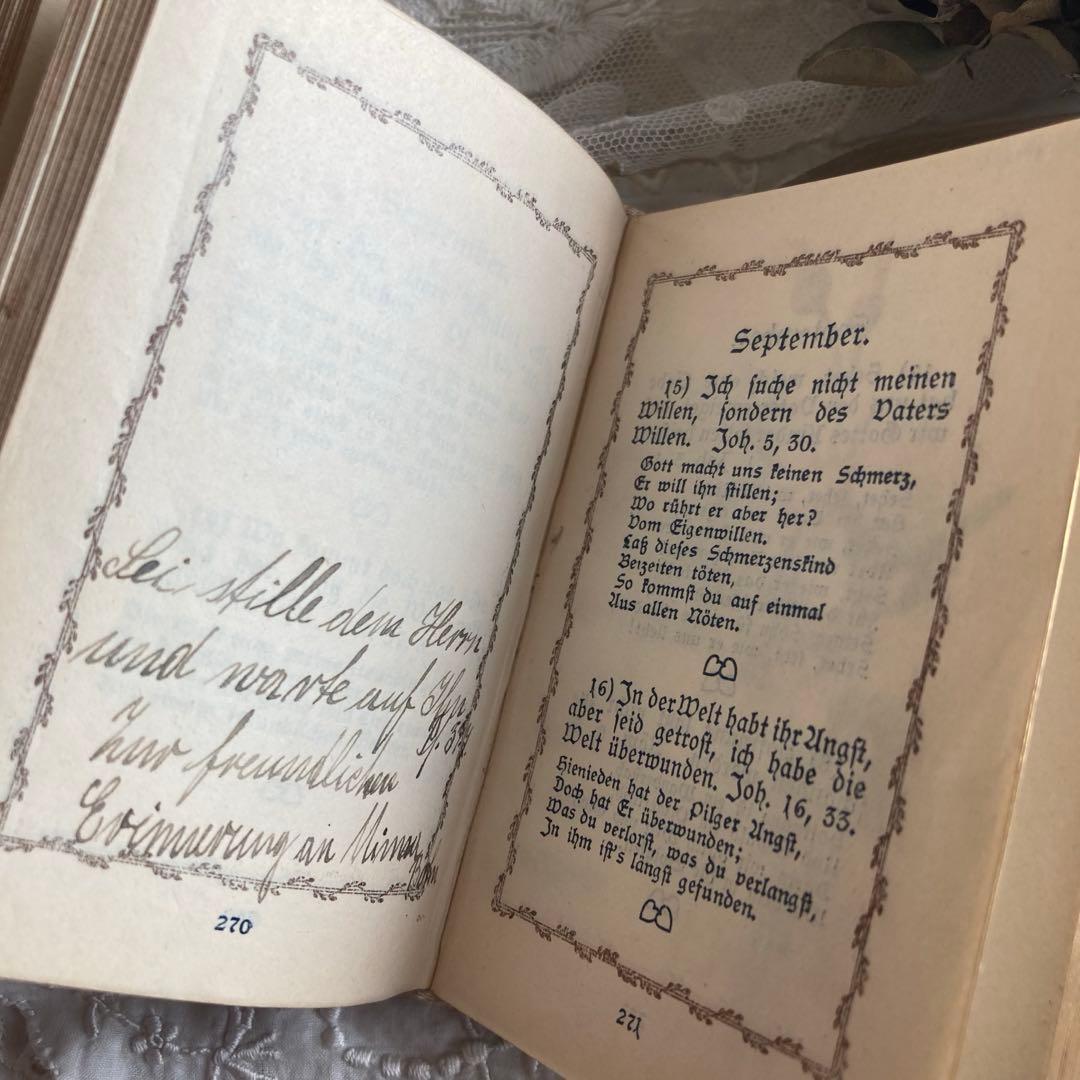 Sei stille dem Herrn
und warte auf Ihn
Zur freundlichen
Erinnerung an
270
September.
15) Ich suche nicht meinen
Willen, sondern des Vaters
Willen. Joh. 5, 30.
Gott macht uns keinen Schmerz,
Er will ihn stillen;
Wo rührt er aber her?
Vom Eigenwillen.
Laß dieses Schmerzenskind
Beizeiten töten,
So kommst du auf einmal
Aus allen Nöten.
16) In der Welt habt ihr Angst,
aber seid getrost, ich habe die
Welt überwunden. Joh. 16, 33.
Hienieden hat der Pilger Angst,
Doch hat Er überwunden;
Was du verlorst, was du verlangst,
In ihm ist's längst gefunden.
271